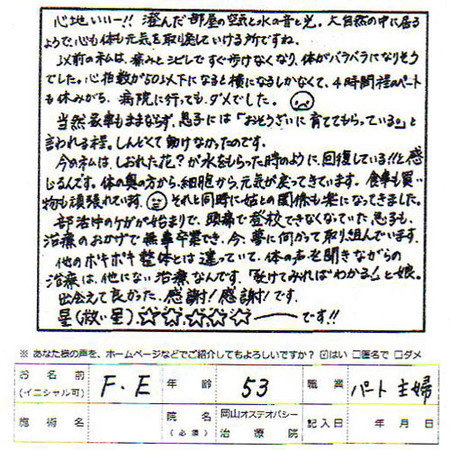 心地いいー!! 澄んだ部屋の空気と水の音と光。大自然の中に居る
ようで心も体も元気を取り戻していける所ですね。
以前の私は、痛みとシビレですぐ歩けなくなり、体がバラバラになりそう
でした。心拍数が50以下になると横になるしかなくて、4時間程のパート
も休みがち、病院に行っても、ダメでした。
当然家事もままならず、息子には「おそうざいに育ててもらっている。」と
言われる程。しんどくて動けなかったのです。
今の私は、しおれた花?が水をもらった時のように、回復している!!と感
じるんです。体の奥の方から、細胞から、元気が戻ってきています。食事も買い
物も頑張れています。それと同時に姑との関係も楽になってきました。
部活中のケガが始まりで、頭痛で登校できなくなっていた息子も、
治療のおかげで無事卒業でき、今、夢に向かって取り組んでいます。
他のボキボキ整体とは違っていて、体の声を聞きながらの
治療は、他にない治療なんです。「受けてみればわかる!」と娘。
出会えて良かった、感謝!感謝!です。
星(救い星)、☆☆☆☆☆ーです!!
※ あなた様の声を、ホームページなどでご紹介してもよろしいですか? ☑はい □匿名で □ダメ
お名前(イニシャル可) F・E 年齢 53 職業 パート主婦
施術名 院名(必須) 岡山オステオパシー治療院 記入日 年 月 日